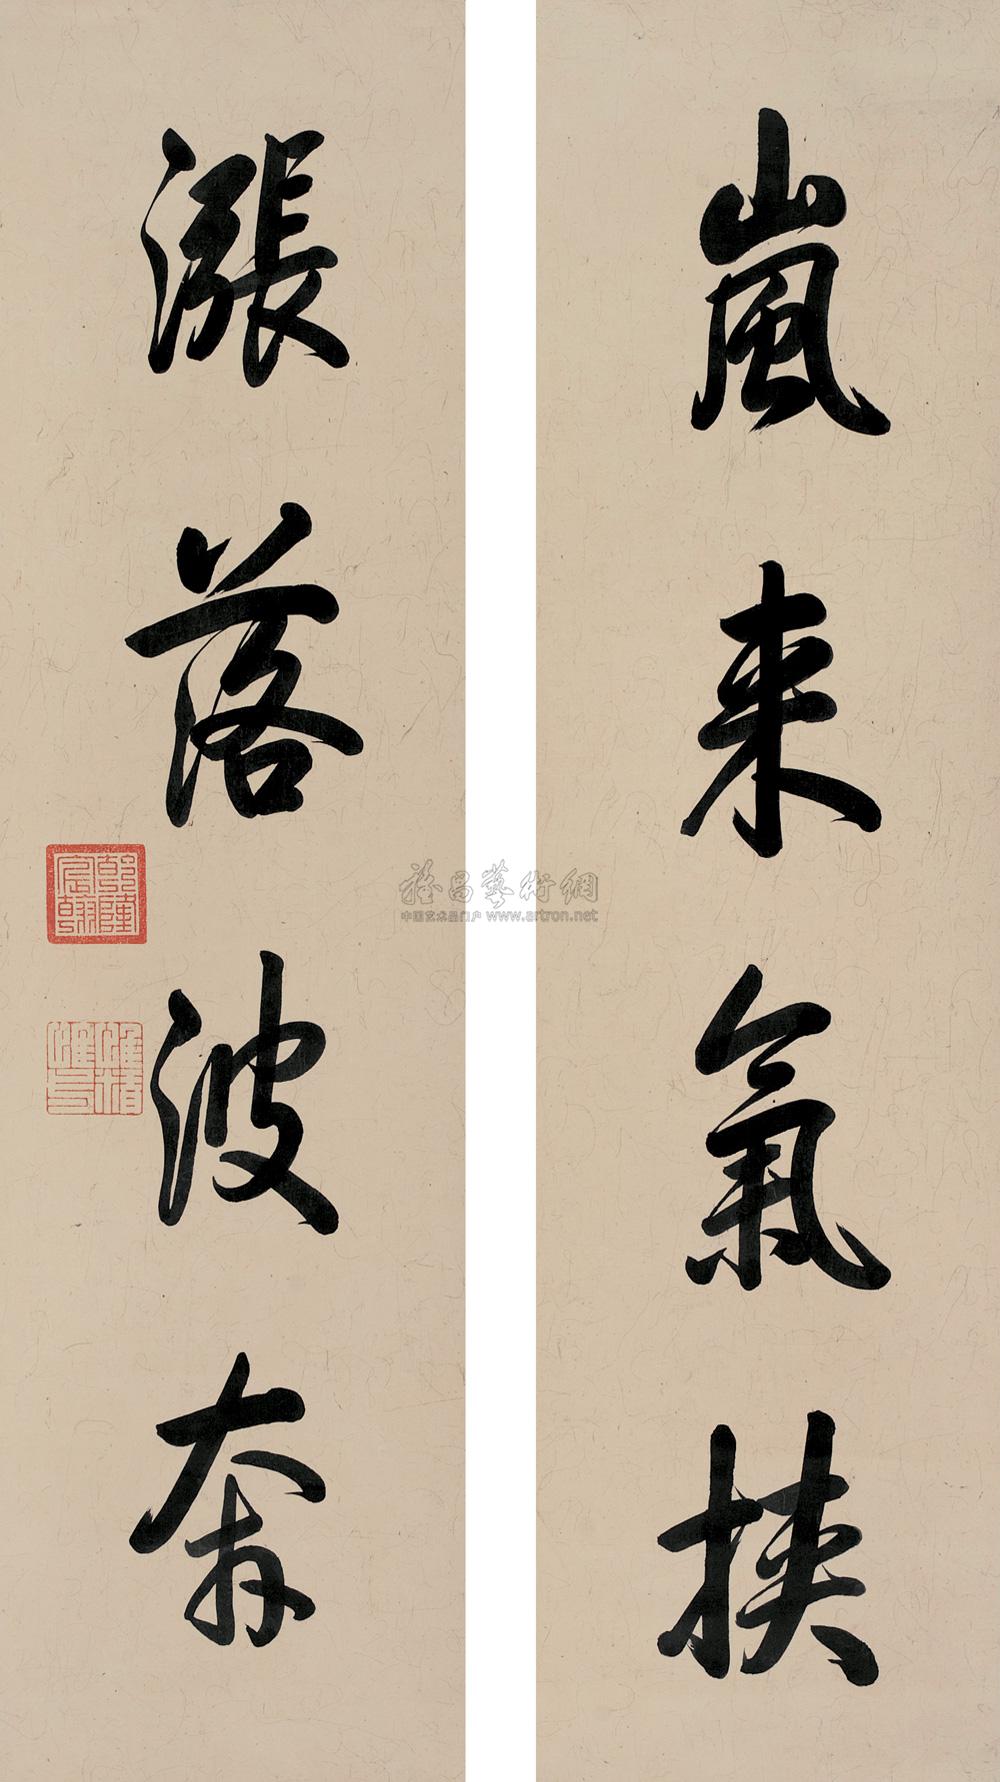 嵐来氣挟
漲落波奔
乾隆宸翰
惟精惟一
雅昌藝術網
中国艺术品门户 www.artron.net